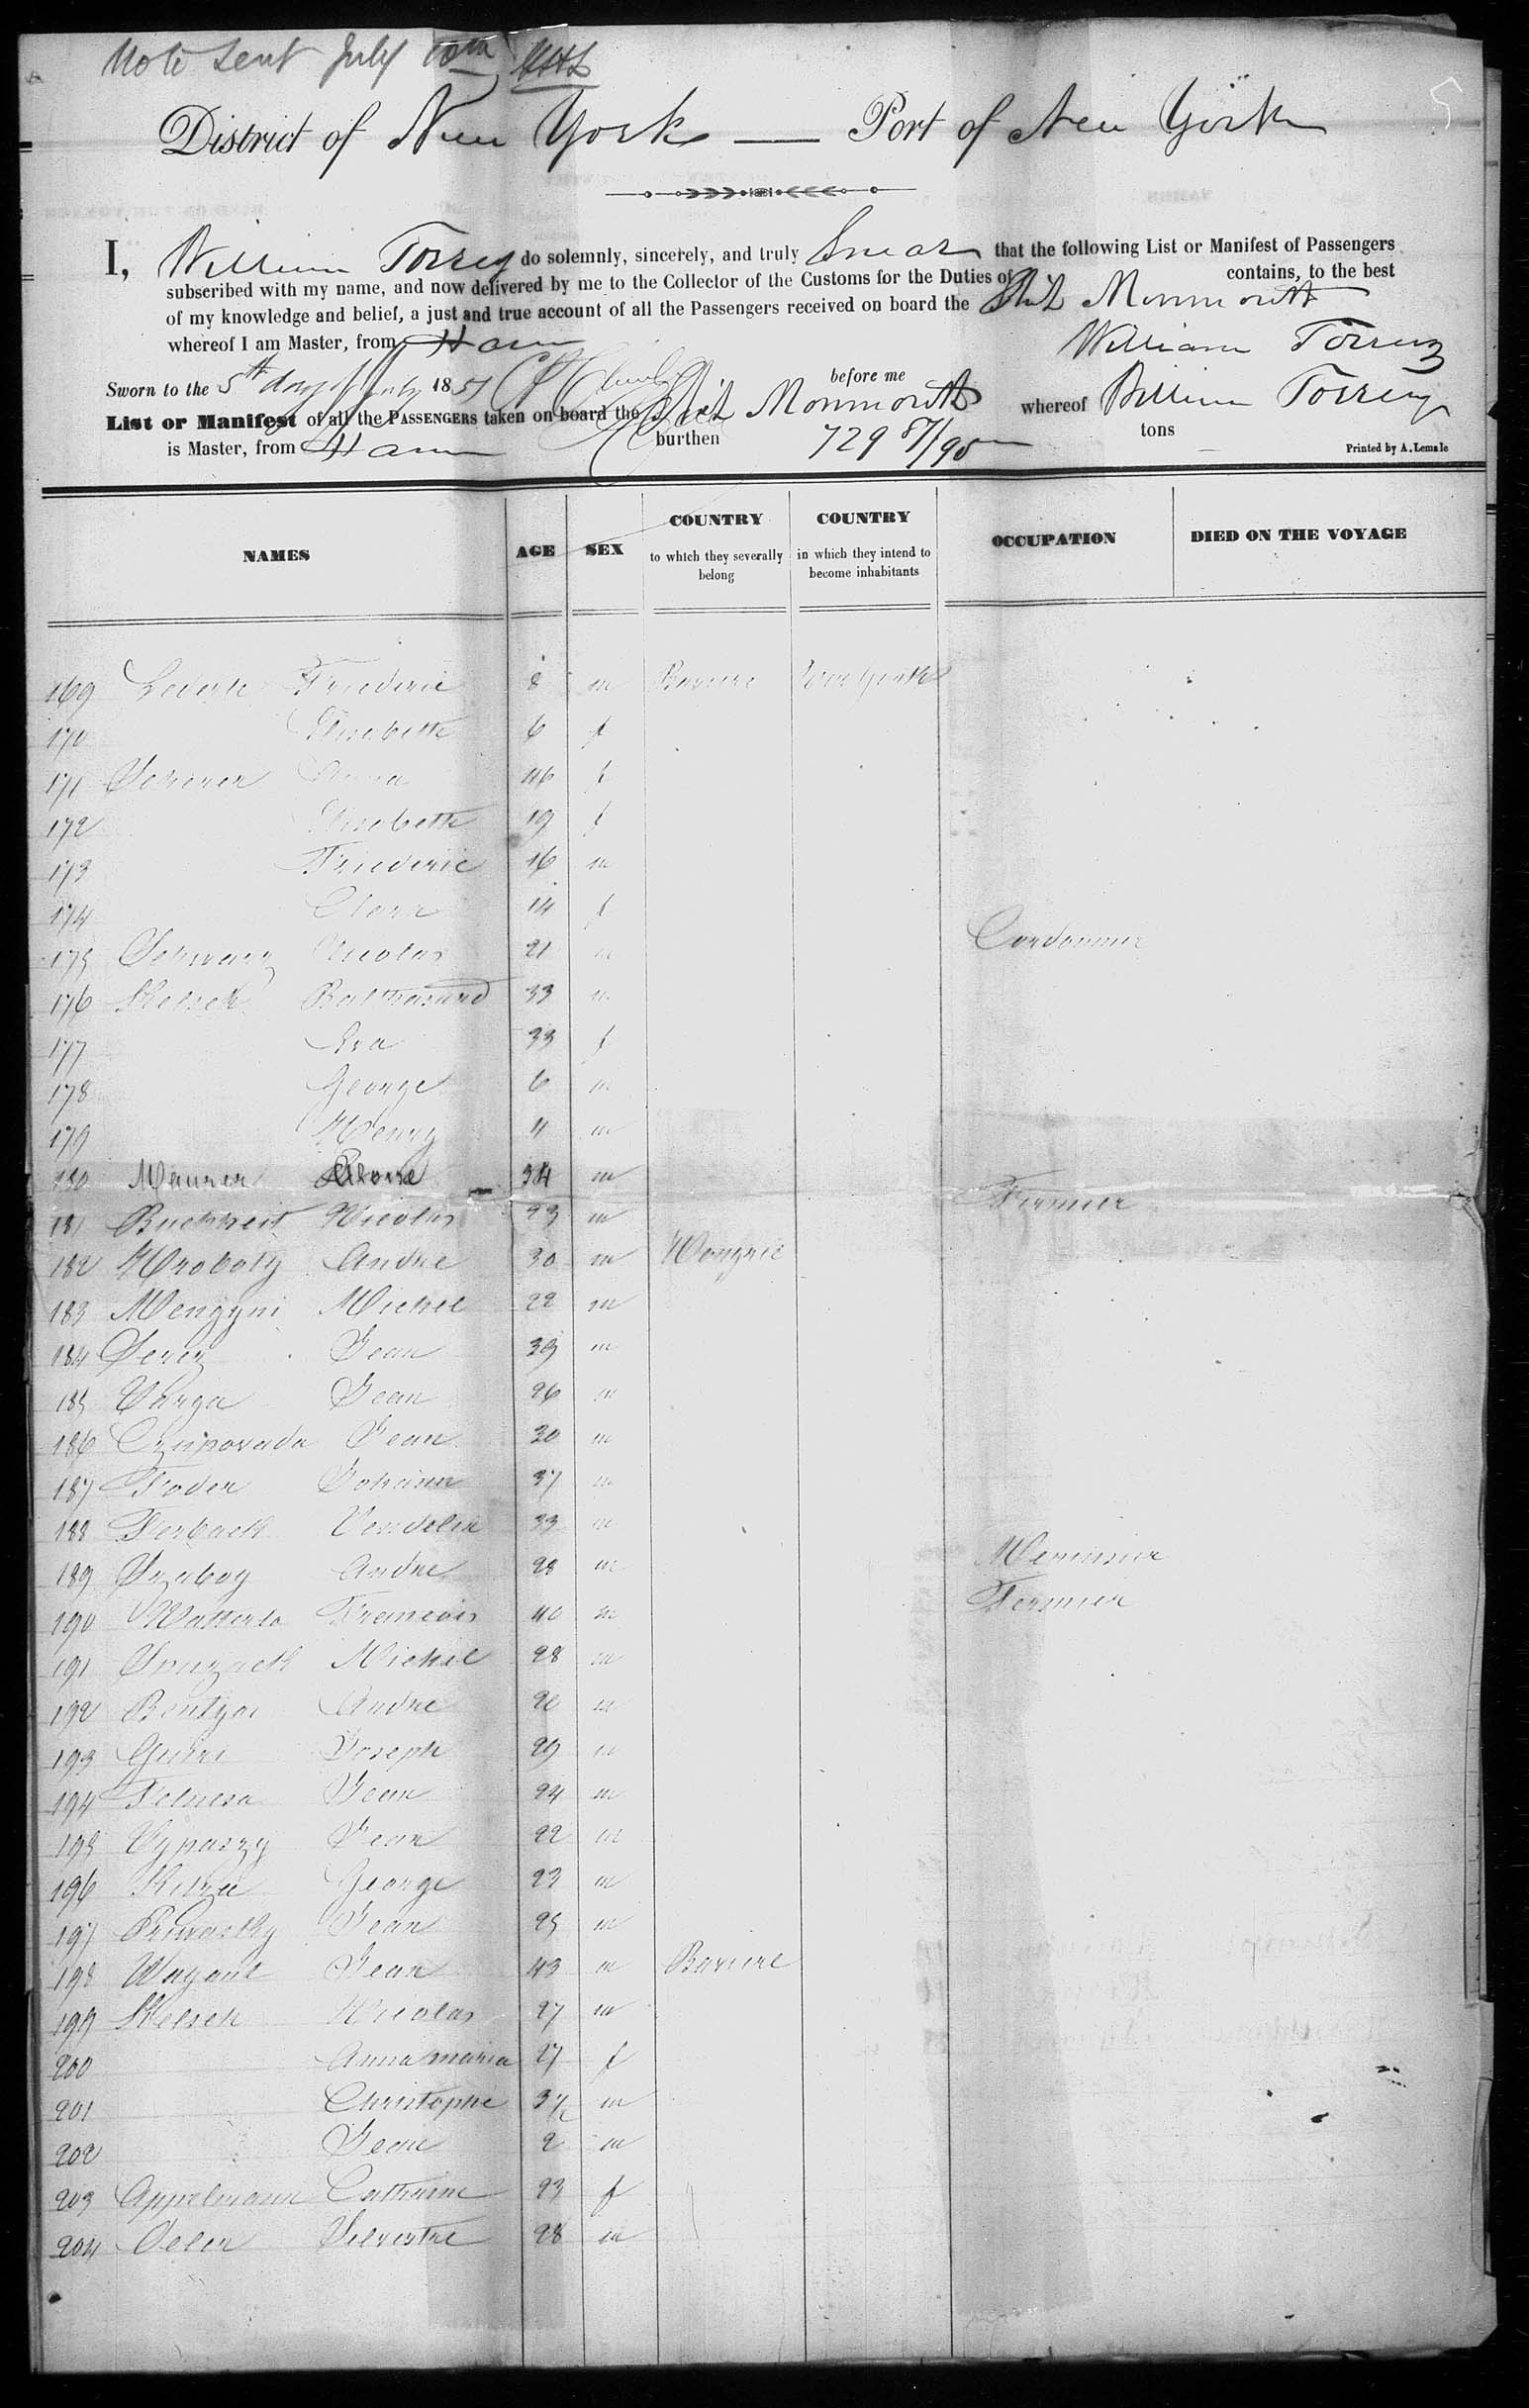 Note sent July 10th
District of New York — Port of New York
I, William Torrey do solemnly, sincerely, and truly Swear that the following List or Manifest of Passengers
subscribed with my name, and now delivered by me to the Collector of the Customs for the Duties of contains, to the best
of my knowledge and belief, a just and true account of all the Passengers received on board the Ship Monmouth
whereof I am Master, from Havre
William Torrey
Sworn to the 5th day of July 1851 before me
List or Manifest of all the PASSENGERS taken on board the Ship Monmouth whereof William Torrey
is Master, from Havre burthen 729 87/95 tons
Printed by A. Lemale
NAMES AGE SEX COUNTRY to which they severally belong COUNTRY in which they intend to become inhabitants OCCUPATION DIED ON THE VOYAGE
169 Frederic 8 m Baviere New York
170 Elisabeth 6 f
171 Scherer Anna 46 f
172 Elisabeth 19 f
173 Frederic 16 m
174 14 f
175 Schwarz Nicolas 21 m Cordonnier
176 Kelsch Balthasard 33 m
177 Eva 33 f
178 George 6 m
179 Henry 4 m
180 Maurer 34 m Fermier
181 Buchheit Nicolas 23 m
182 Hroboty Andre 30 m Hongrie
183 Mengyni Michel 22 m
184 Jean 39 m
185 Varga Jean 26 m
186 Czuporada Jean 30 m
187 Foder Johann 37 m
188 Ferbach Vendelin 33 m
189 Szaboy Andre 28 m Menuisier
190 Francois 40 m Fermier
191 Michel 28 m
192 Andre m
193 Joseph 29 m
194 Jean 24 m
195 Vypaszy Jean 22 m
196 George 23 m
197 Jean 25 m
198 Wagant Jean 43 m Baviere
199 Kelsch Nicolas 27 m
200 Anna maria 27 f
201 Christophe 3 1/2 m
202 Jean 2 m
203 Appelmann Catharine 23 f
204 Oeler Silvestre 28 m